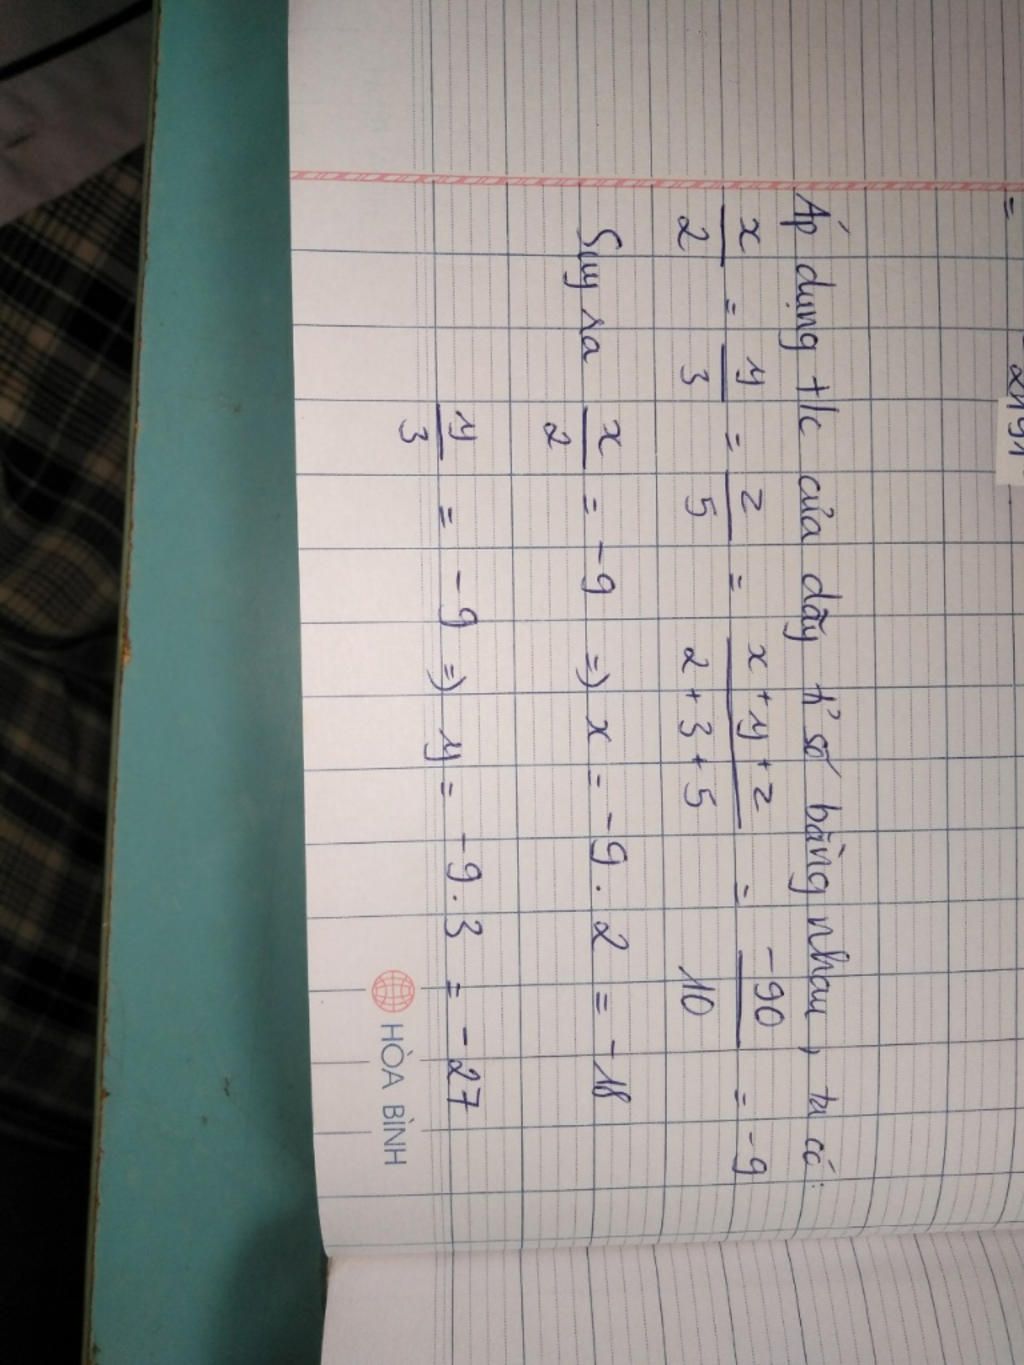 Áp dụng t/c của dãy tỉ số bằng nhau, ta có:
x/2 = y/3 = z/5 = x + y + z / 2 + 3 + 5 = -90/10 = -9
Suy ra x/2 = -9 => x = -9 . 2 = -18
y/3 = -9 => y = -9 . 3 = -27
HÒA BÌNH